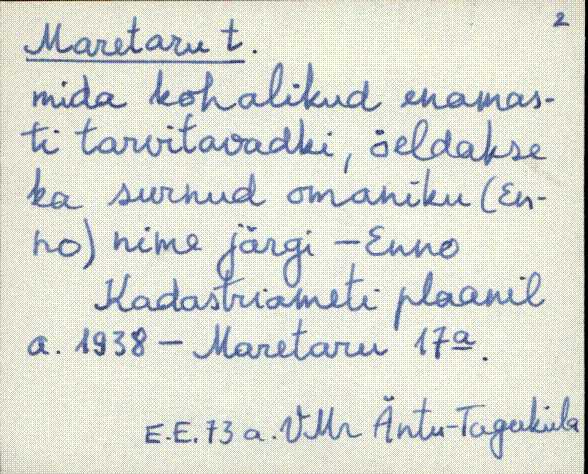 2
Maretaru t.
mida kohalikud enamas-
ti tarvitavadki, öeldakse
ka surnud omaniku (En-
no) nime järgi – Enno
Kadastriameti plaanil
a. 1938 – Maretaru 17a.
E.E. 73 a. VMr Äntu-Tagaküla